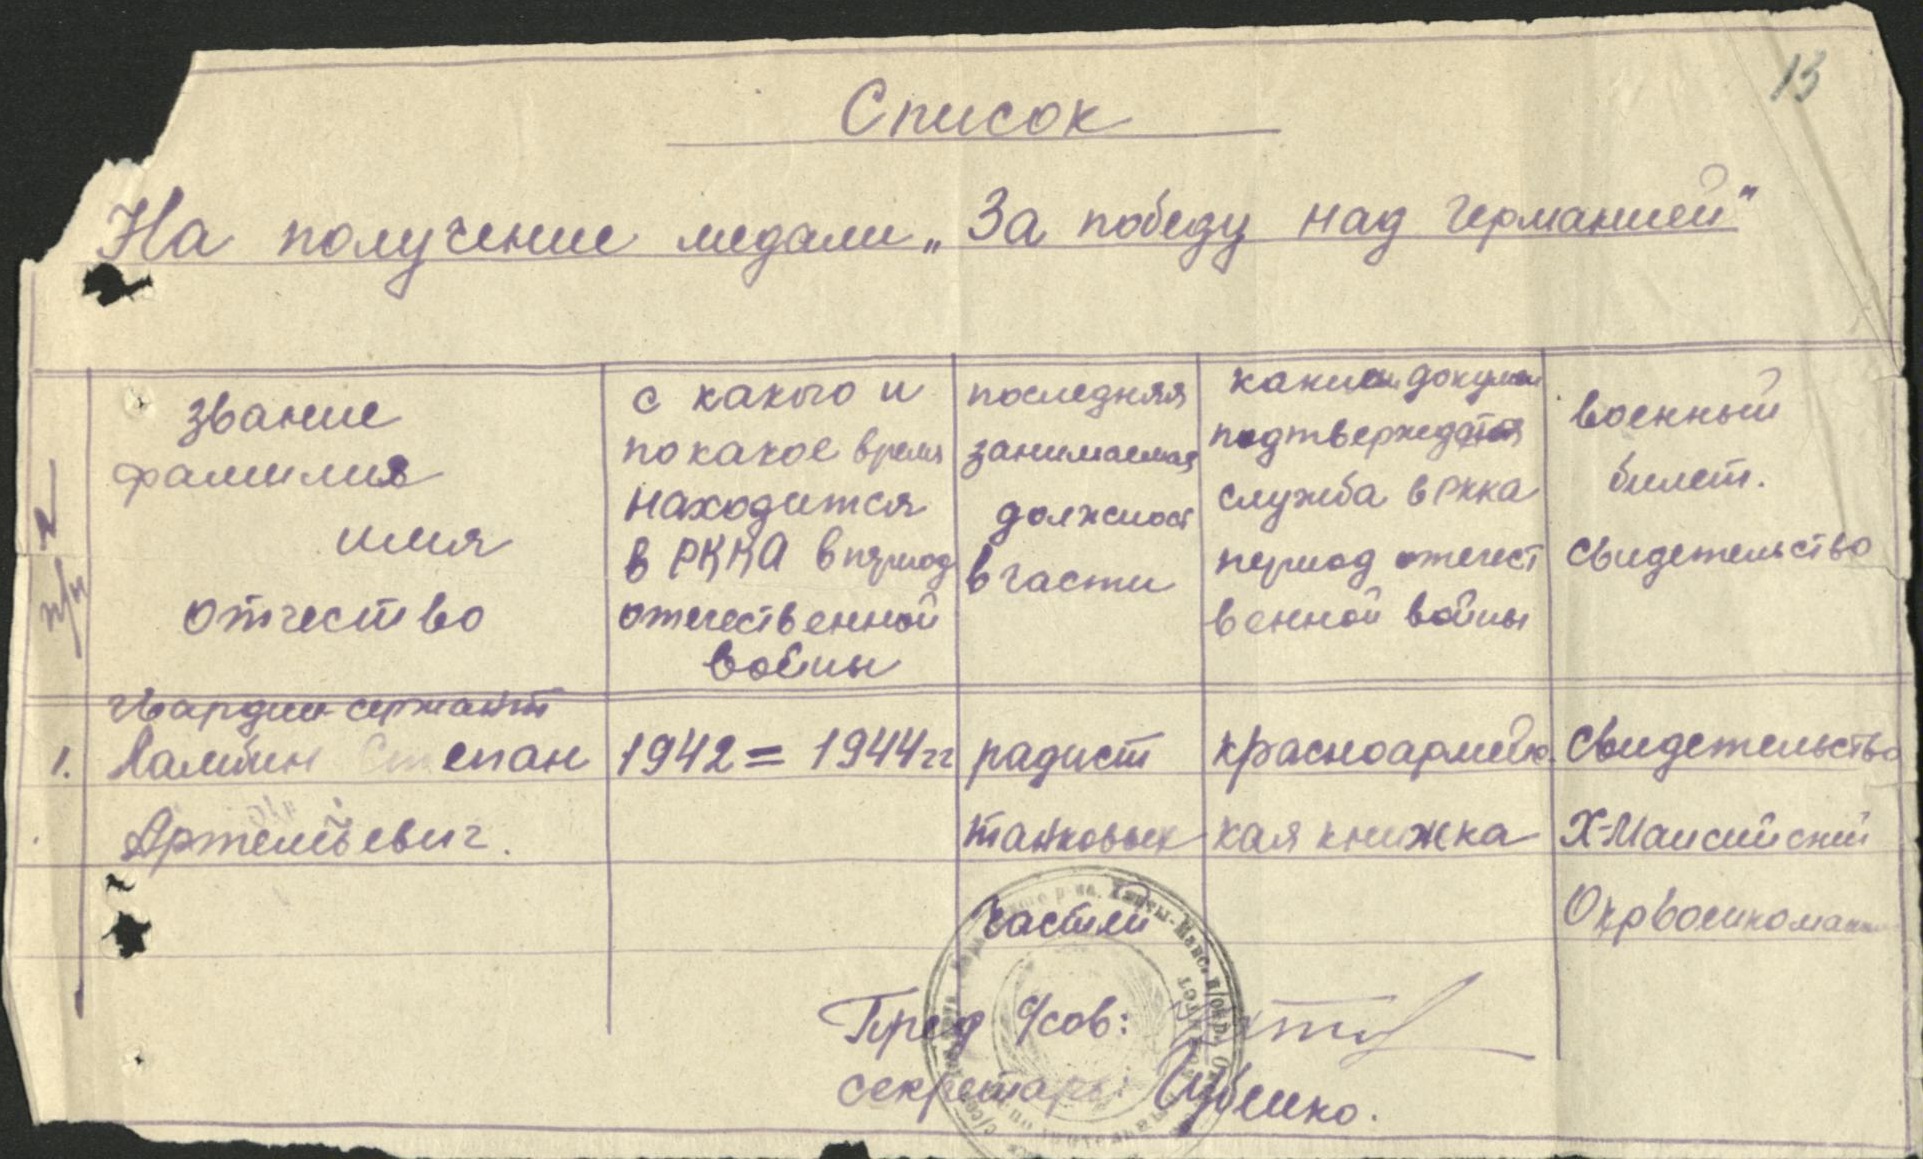 13
Список
На получение медали „За победу над Германией"
№
п/п
звание
фамилия
имя
отчество
с какого и
по какое время
находится
в РККА в период
отечественной
войны
последняя
занимаемая
должност
в части
каким докумен
подтверждается
служба в РККА
период отечест
венной войны
военный
билет.
свидетельство
гвардии сержант
1. Ламбин Степан
Артемьевич.
1942 = 1944 гг
радист
танковых
части
красноармейс.
кая книжка
свидетельство
Х-Мансийский
Окрвоенкомат
Пред с/сов:
секретарь: